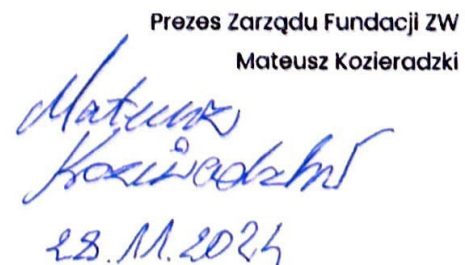 Prezes Zarządu Fundacji ZW
Mateusz Kozieradzki
Mateusz
Kozieradzki
28.11.2024